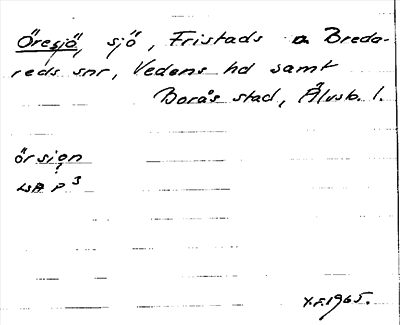 Öresjö, sjö, Fristads o Breda-
reds snr, Vedens hd samt
Borås stad, Älvsb. l.
örsion
P 3
X.F.1965.